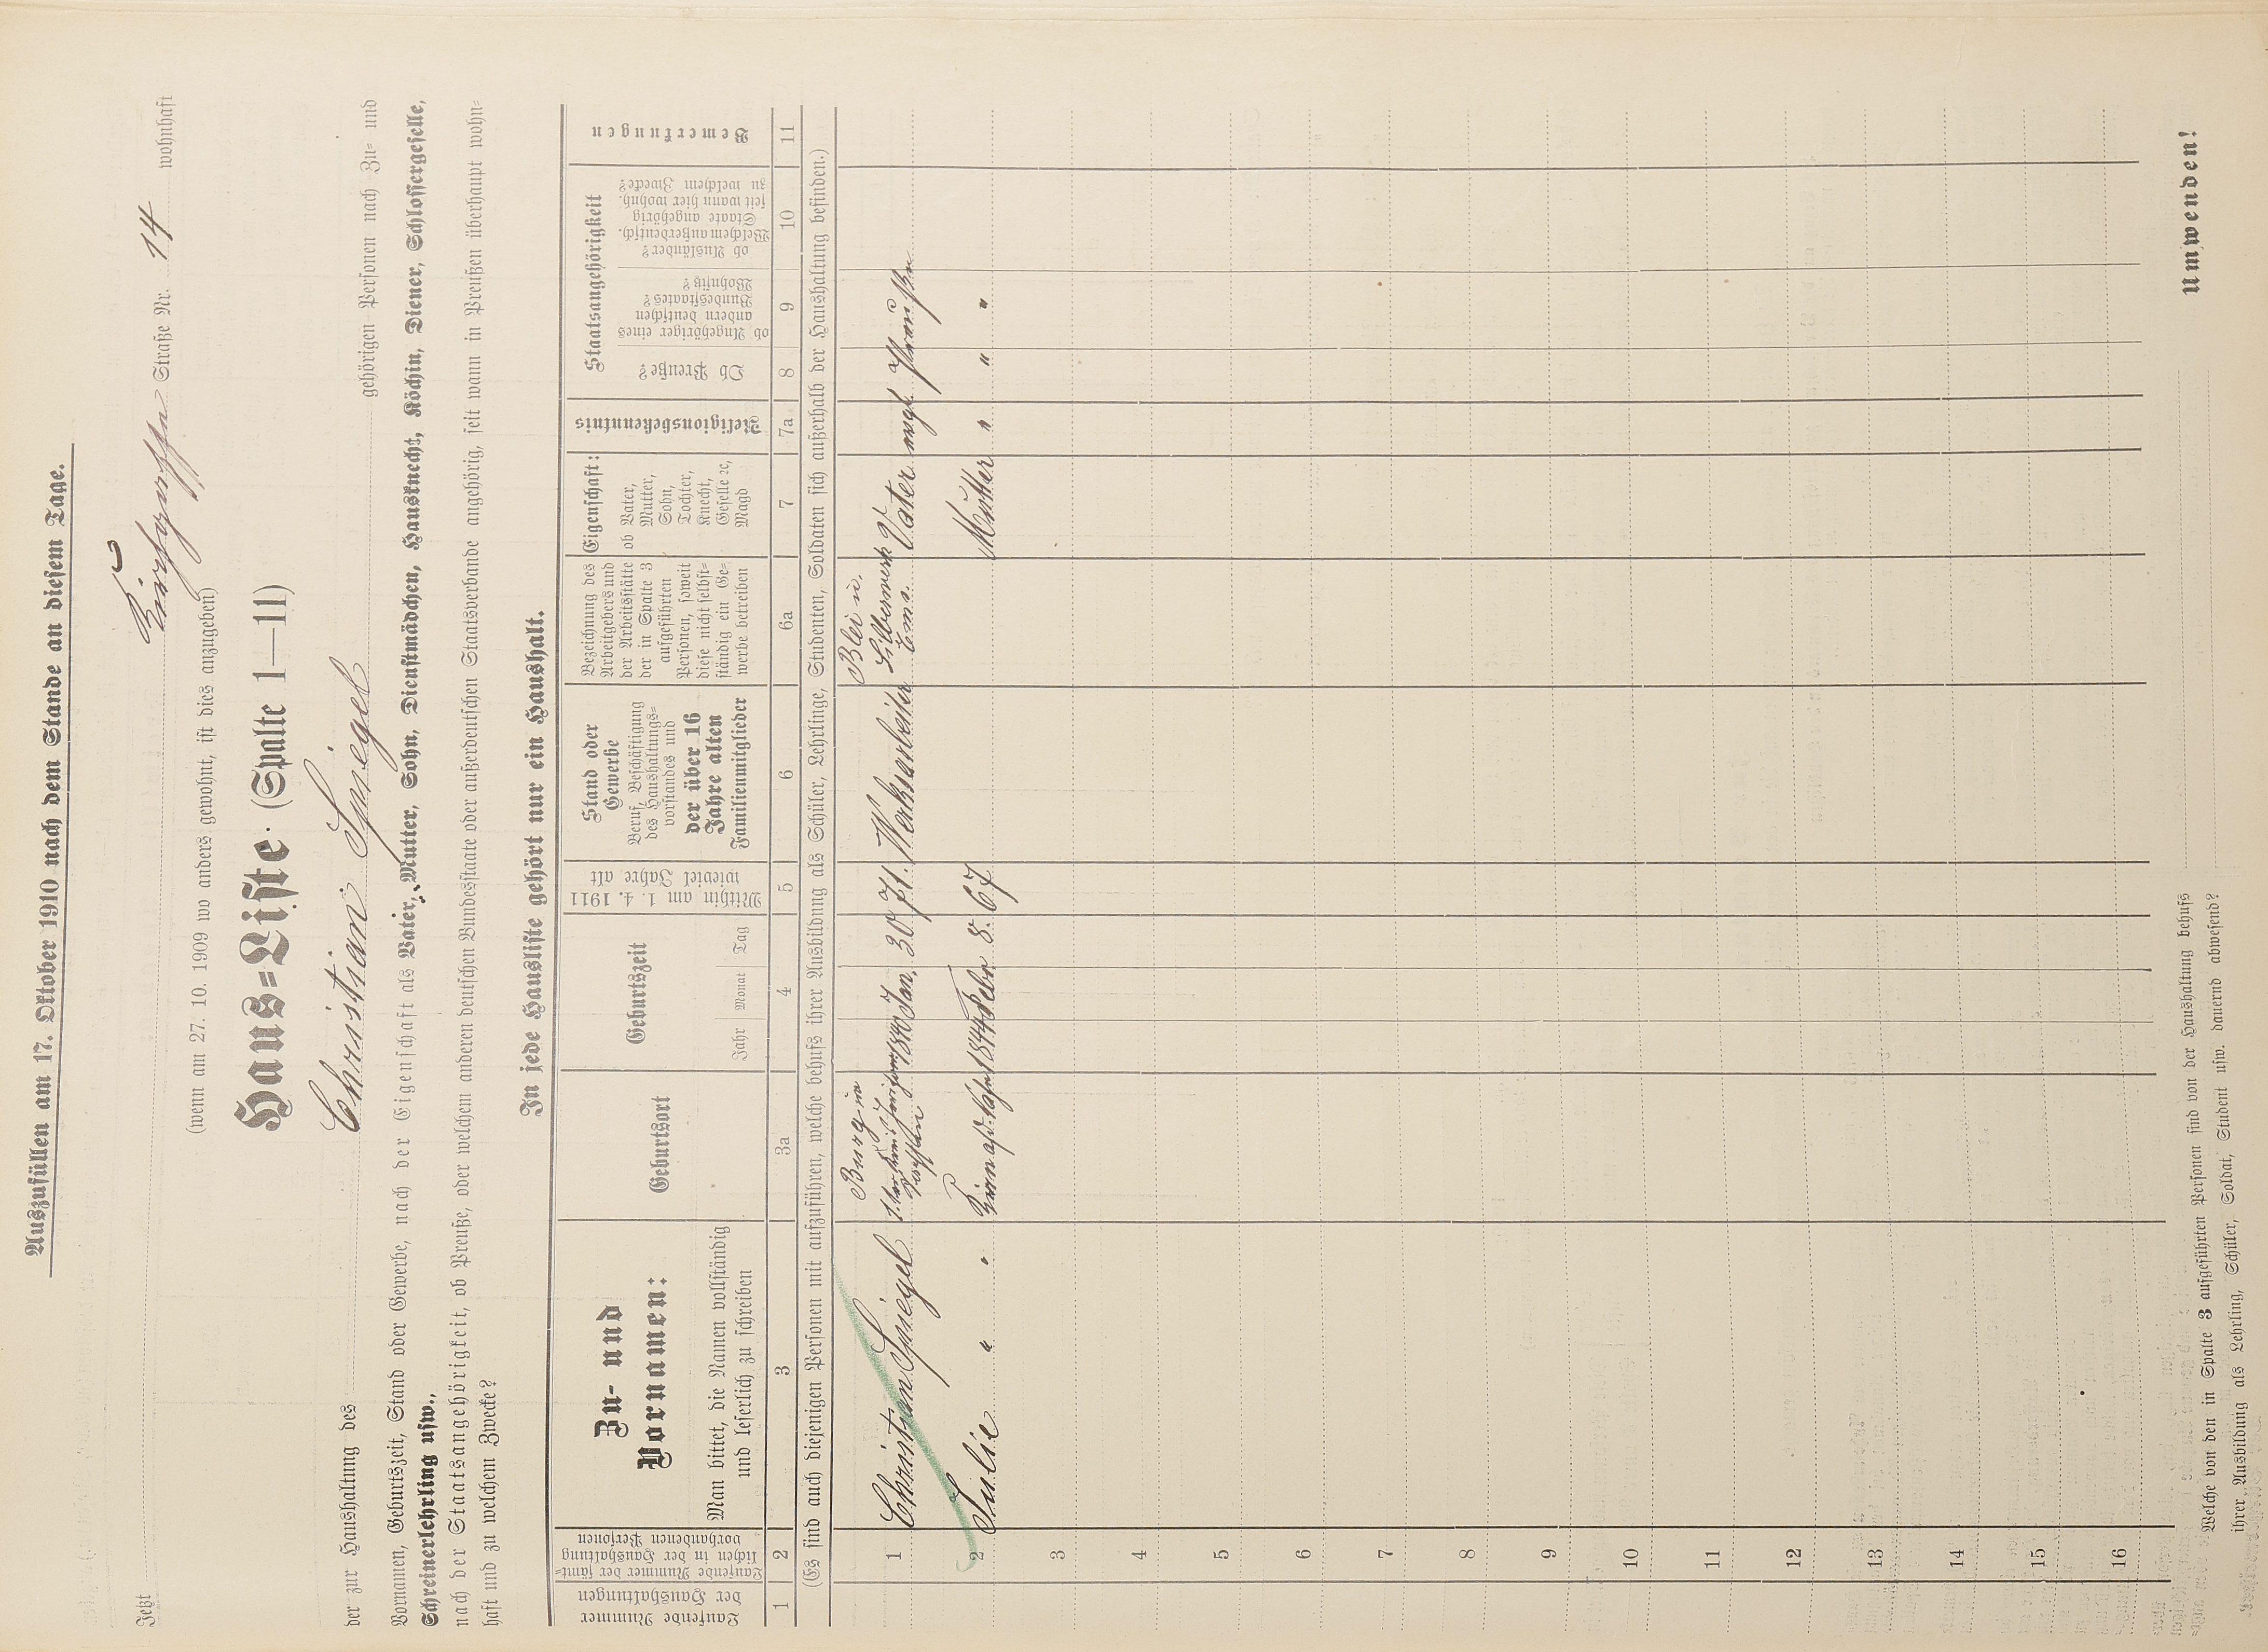 Auszufüllen am 17. Oktober 1910 nach dem Stande an diesem Tage.
Jetzt Straße Nr. 14 wohnhaft
(wenn am 27. 10. 1909 wo anders gewohnt, ist dies anzugeben)
Haus=Liste (Spalte 1—11)
der zur Haushaltung des Christian Spriegel gehörigen Personen nach Zu= und
Vornamen, Geburtszeit, Stand oder Gewerbe, nach der Eigenschaft als Vater, Mutter, Sohn, Dienstmädchen, Hausknecht, Köchin, Diener, Schlossergeselle,
Schreinerlehrling usw.,
nach der Staatsangehörigkeit, ob Preuße, oder welchem anderen deutschen Bundesstaate oder außerdeutschen Staatsverbande angehörig, seit wann in Preußen überhaupt wohn=
haft und zu welchem Zwecke?
In jede Hausliste gehört nur ein Haushalt.
Laufende Nummer
der Haushaltungen
Laufende Nummer der sämt=
lichen in der Haushaltung
vorhandenen Personen
Zu- und
Vornamen:
Man bittet, die Namen vollständig
und leserlich zu schreiben
Geburtsort
Geburtszeit
Jahr Monat Tag
Mithin am 1. 4. 1911
wieviel Jahre alt
Stand oder
Gewerbe
Beruf, Beschäftigung
des Haushaltungs=
vorstandes und
der über 16
Jahre alten
Familienmitglieder
Bezeichnung des
Arbeitgebers und
der Arbeitsstätte
der in Spalte 3
aufgeführten
Personen, soweit
diese nicht selbst=
ständig ein Ge=
werbe betreiben
Eigenschaft:
ob Vater,
Mutter,
Sohn,
Tochter,
Knecht,
Geselle ꝛc,
Magd
Religionsbekenntnis
Staatsangehörigkeit
Ob Preuße?
ob Angehöriger eines
andern deutschen
Bundesstaates?
Wohnsitz?
ob Ausländer?
Welchem außerdeutsch.
Staate angehörig
seit wann hier wohnh.
zu welchem Zwecke?
Bemerkungen
1 2 3 3a 4 5 6 6a 7 7a 8 9 10 11
(Es sind auch diejenigen Personen mit aufzuführen, welche behufs ihrer Ausbildung als Schüler, Lehrlinge, Studenten, Soldaten sich außerhalb der Haushaltung befinden.)
Burg im Blei u.
1 Christian Spriegel 1840 Jan. 30 71. Werksarbeiter Silberwerk Ems. Vater
2 Julie " " 1844 Febr 8. 67 Mutter " " "
3
4
5
6
7
8
9
10
11
12
13
14
15
16
Welche von den in Spalte 3 aufgeführten Personen sind von der Haushaltung behufs
ihrer Ausbildung als Lehrling, Schüler, Soldat, Student usw. dauernd abwesend?
Umwenden!